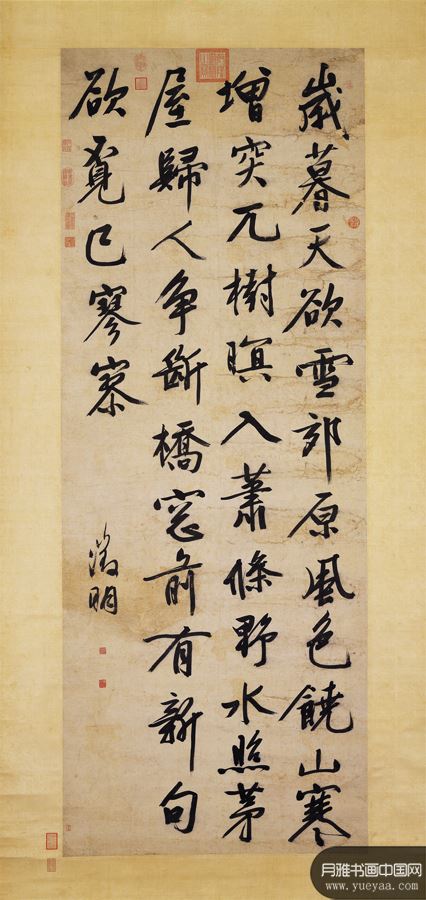 歲暮天欲雪郊原風色饒山寒
增突兀樹暝入蕭條野水照茅
屋歸人争斷橋窓前有新句
欲覔已寥寥
徵明
月雅书画中国网
www.yueyaa.com